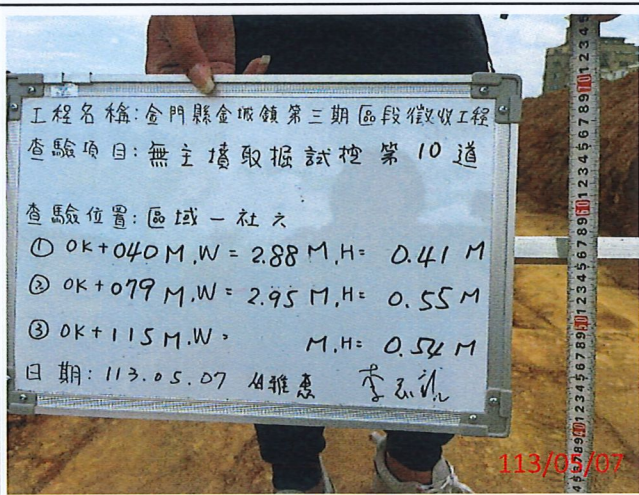 工程名稱:金門縣金城鎮第三期區段徵收工程
查驗項目:無主墳取掘試挖 第10道
查驗位置:區域一社六
① 0K+040M,W=2.88M,H=0.41M
② 0K+079M,W=2.95M,H=0.55M
③ 0K+115M,W= M,H=0.54M
日期:113.05.07
113/05/07